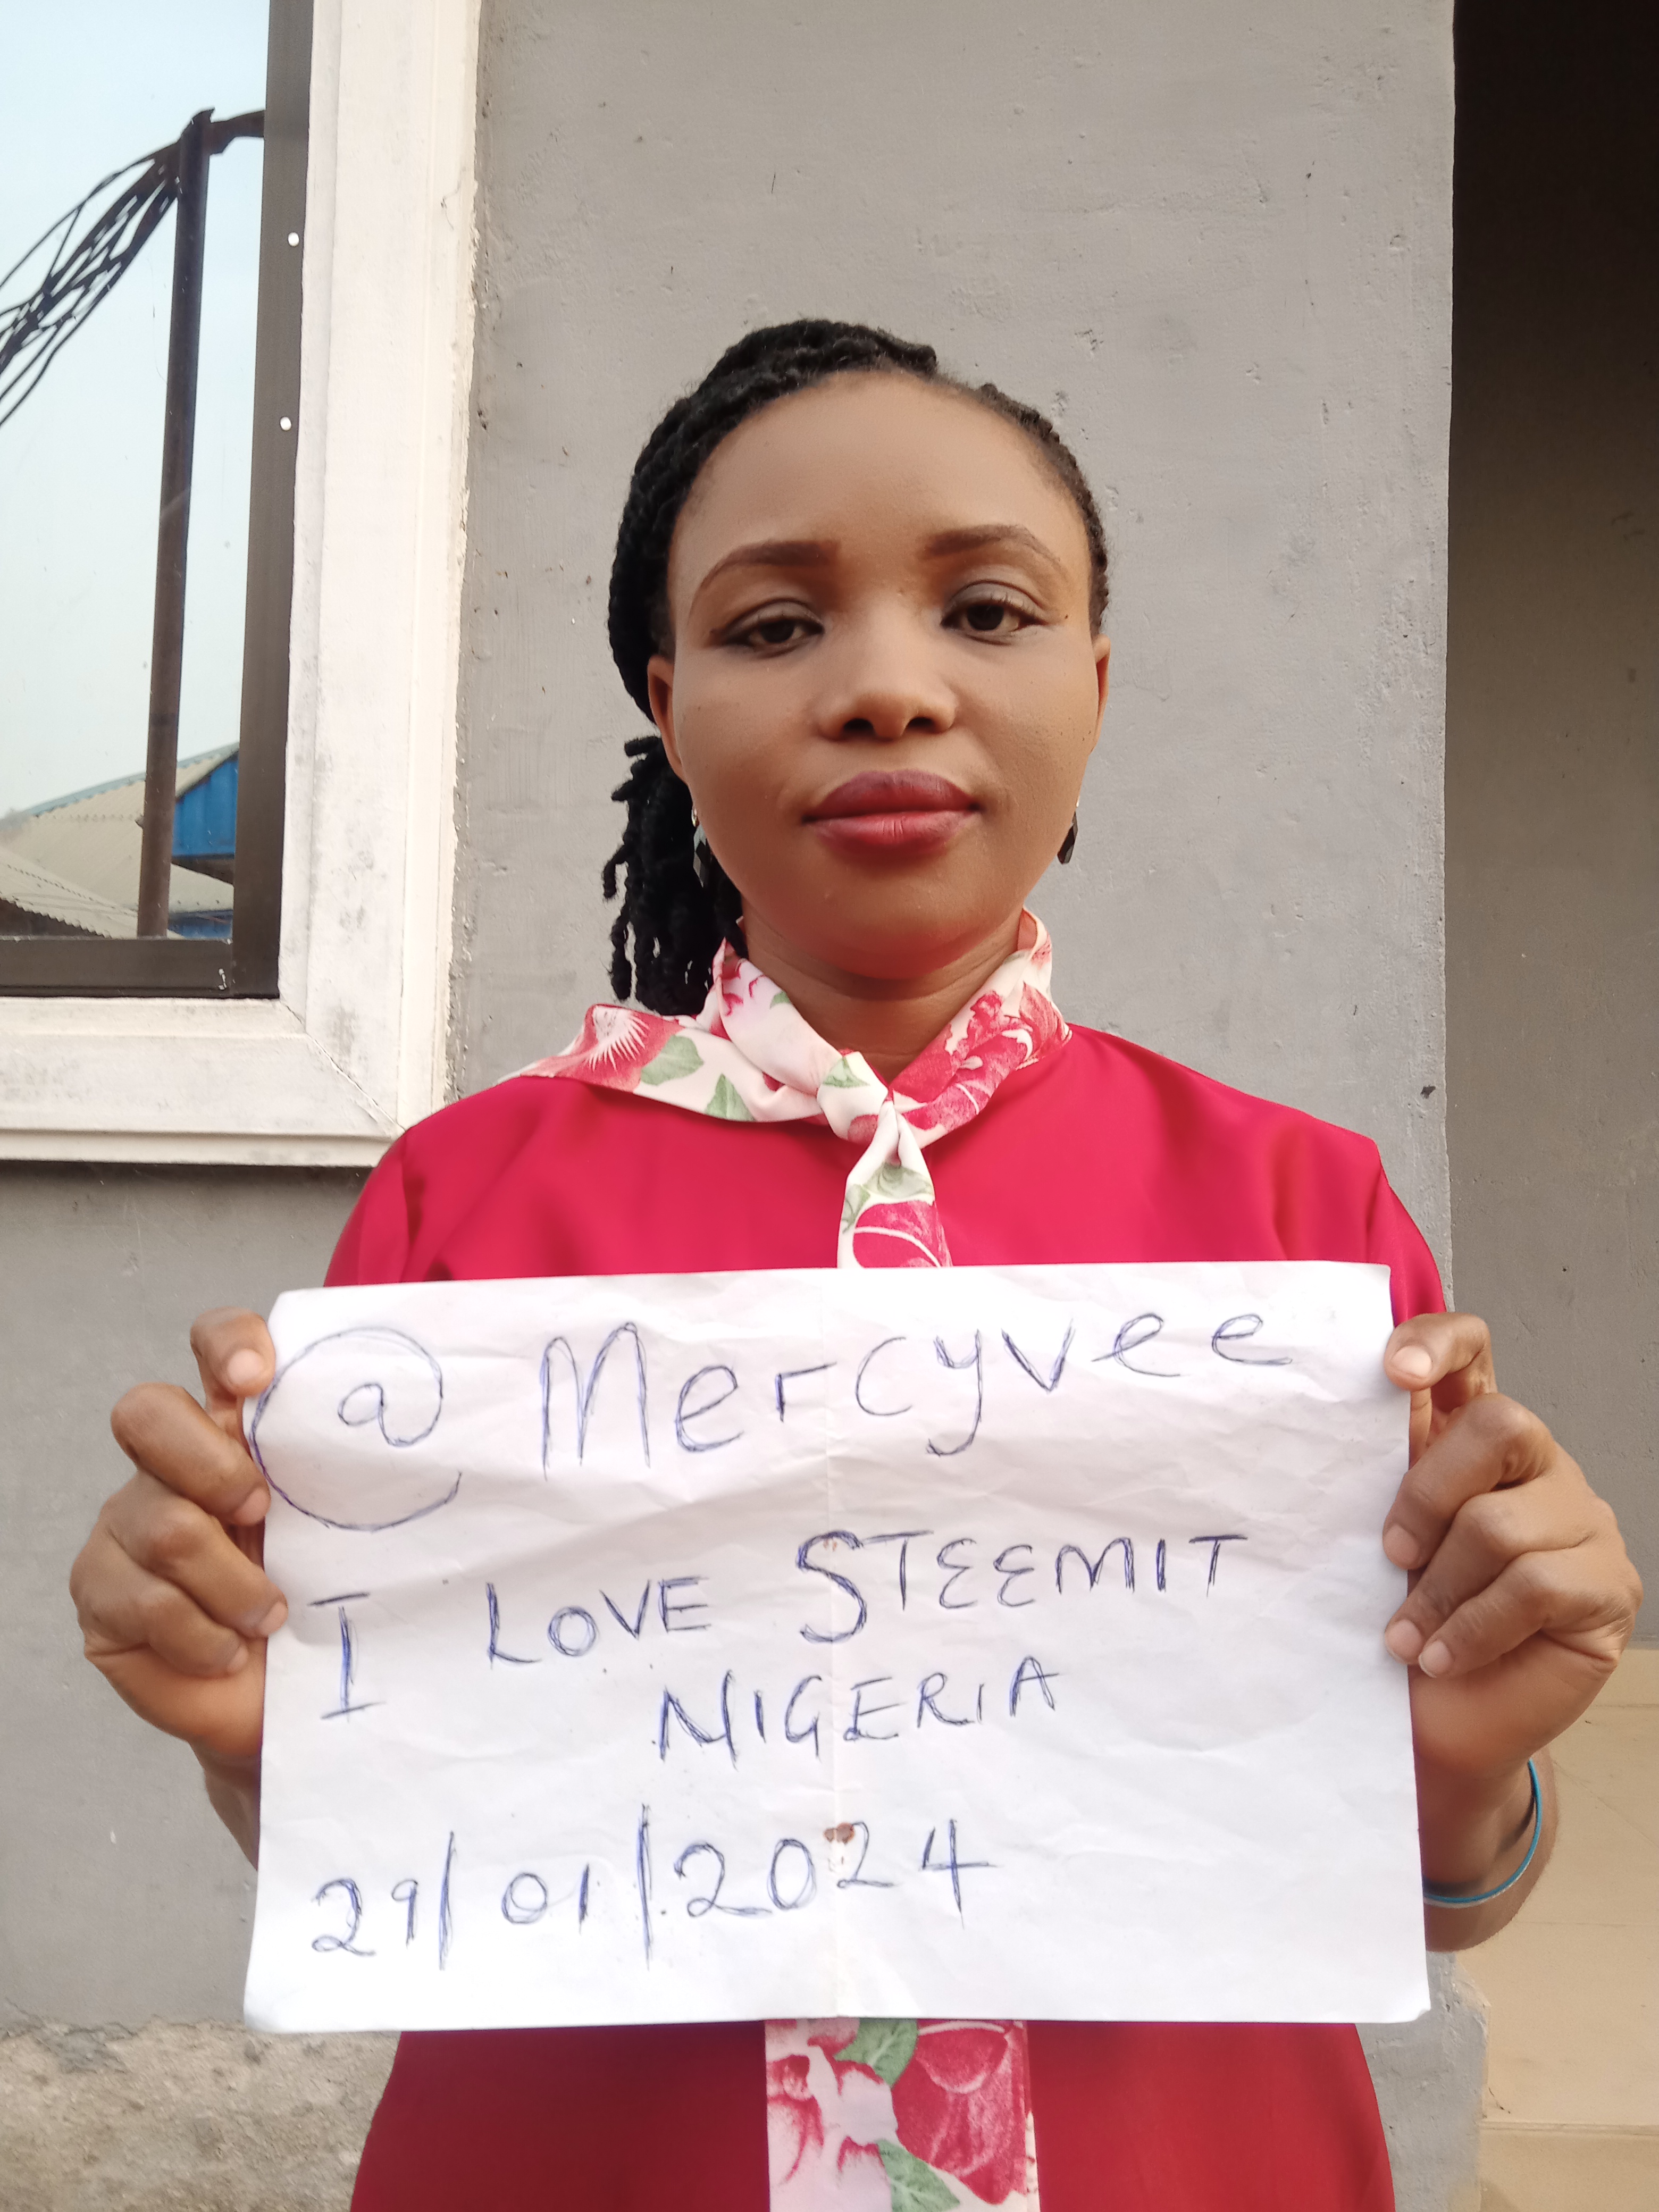 @Mercyvee
I LOVE STEEMIT
NIGERIA
29/01/2024